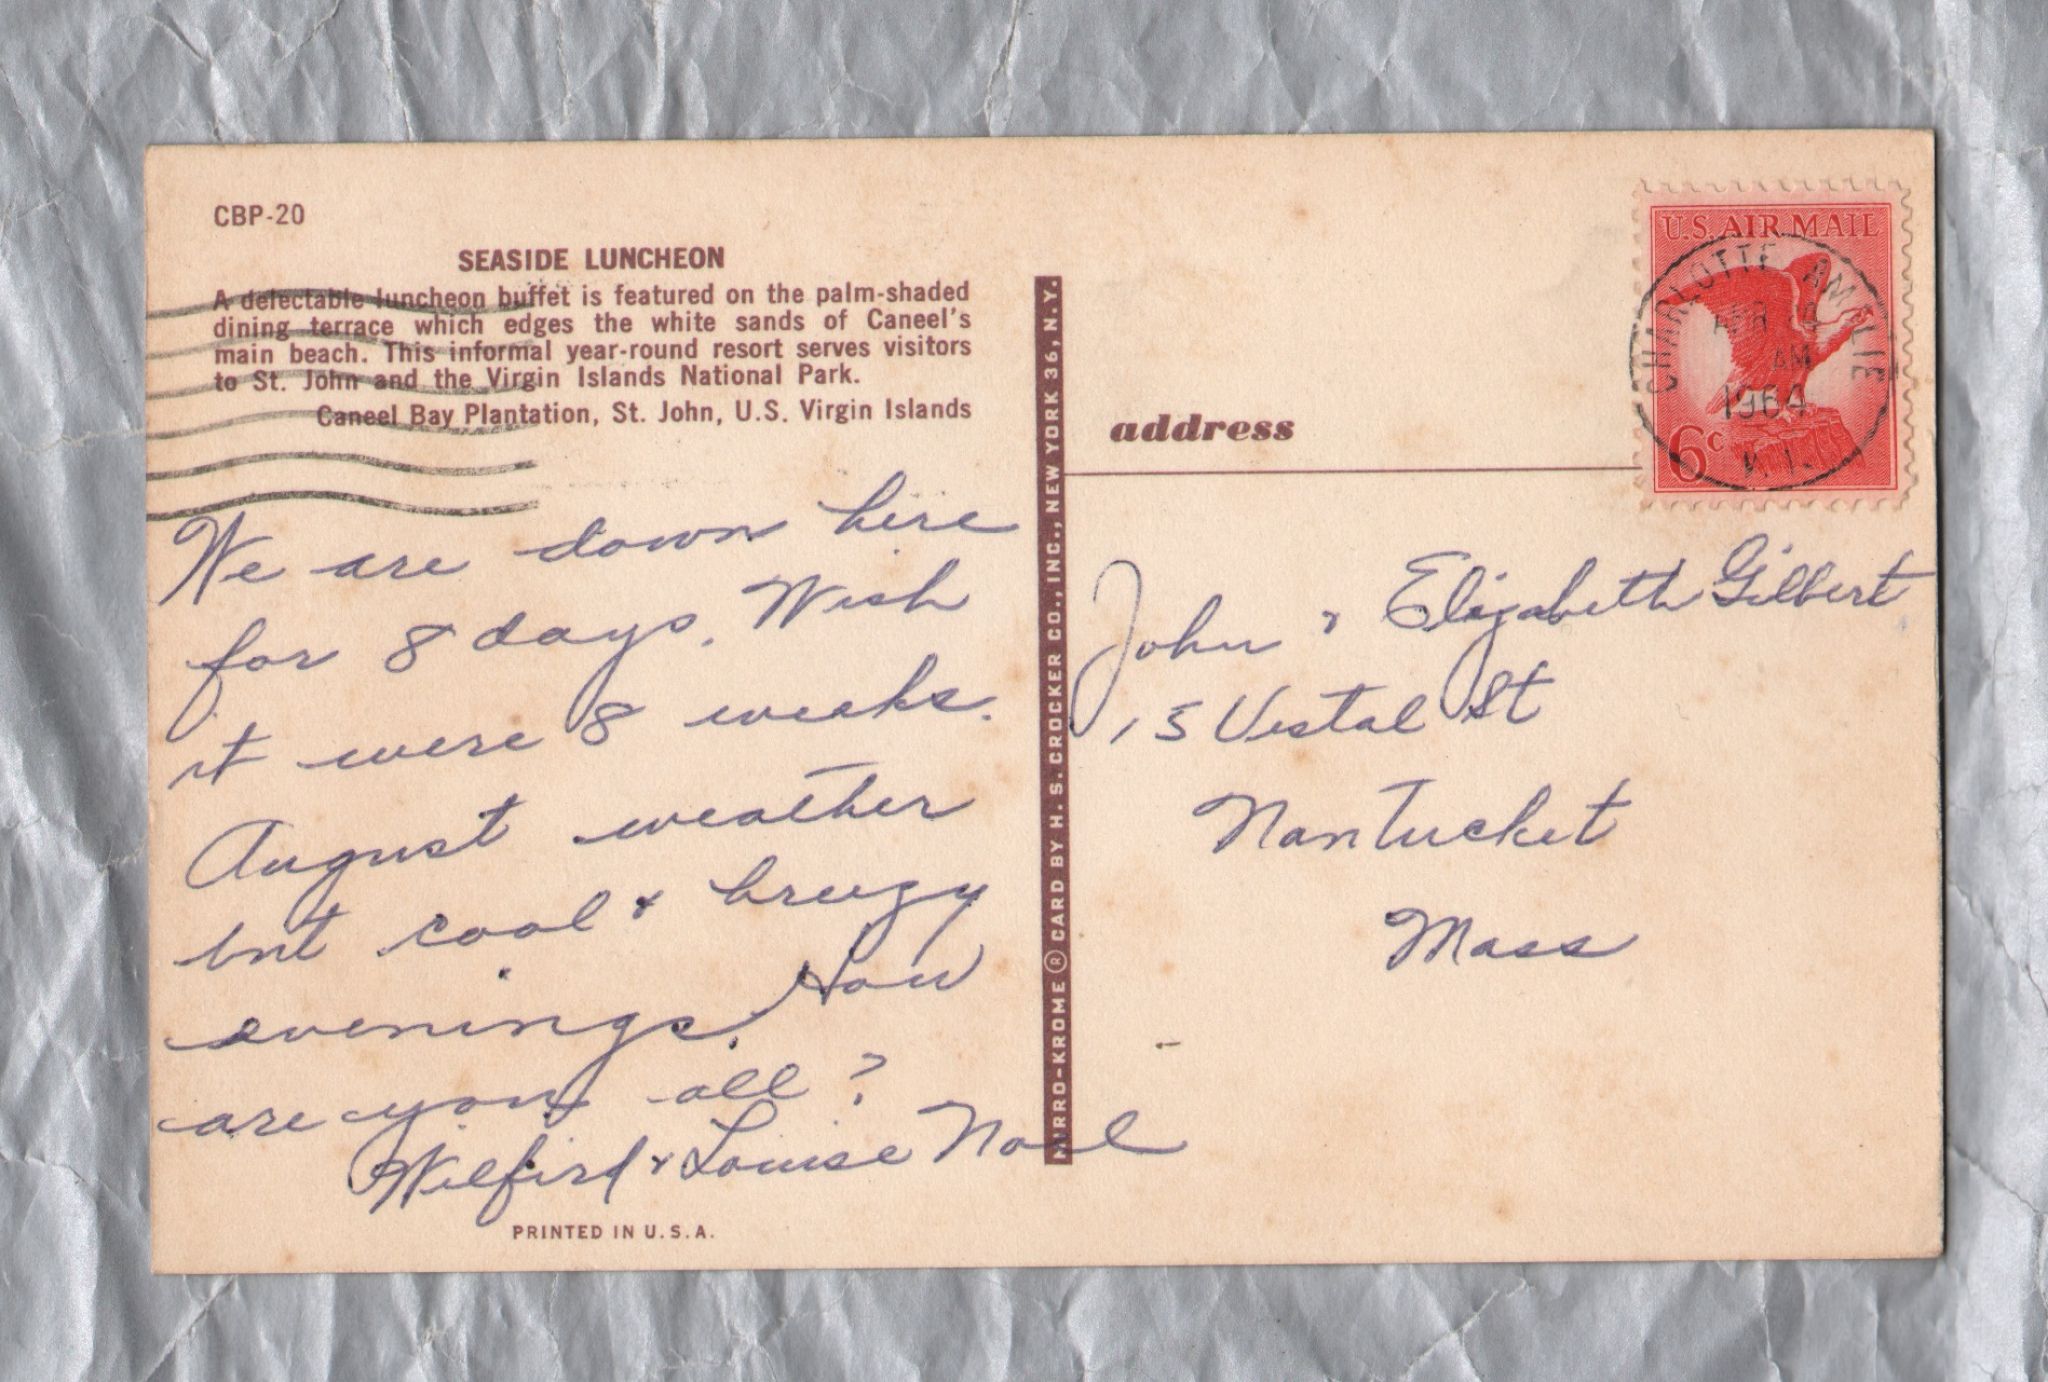 CBP-20
SEASIDE LUNCHEON
A delectable luncheon buffet is featured on the palm-shaded
dining terrace which edges the white sands of Caneel's
main beach. This informal year-round resort serves visitors
to St. John and the Virgin Islands National Park.
Caneel Bay Plantation, St. John, U.S. Virgin Islands
We are down here
for 8 days. Wish
it were 8 weeks.
August weather
but cool & breezy
evenings. How
are you all?
Wilfird & Louise Noel
PRINTED IN U.S.A.
MIRRO-KROME ® CARD BY H. S. CROCKER CO., INC., NEW YORK 36, N.Y.
address
U.S. AIR MAIL
6c
CHARLOTTE AMALIE
APR
AM
1964
V.I.
John & Elizabeth Gilbert
15 Vestal St
Nantucket
Mass